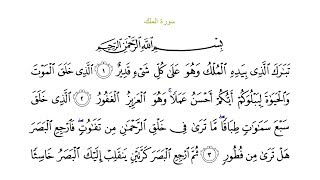 سورة الملك
بِسْمِ اللَّهِ الرَّحْمَٰنِ الرَّحِيمِ
تَبَارَكَ الَّذِي بِيَدِهِ الْمُلْكُ وَهُوَ عَلَىٰ كُلِّ شَيْءٍ قَدِيرٌ ١ الَّذِي خَلَقَ الْمَوْتَ
وَالْحَيَوٰةَ لِيَبْلُوَكُمْ أَيُّكُمْ أَحْسَنُ عَمَلًا ۚ وَهُوَ الْعَزِيزُ الْغَفُورُ ٢ الَّذِي خَلَقَ
سَبْعَ سَمَٰوَٰتٍ طِبَاقًا ۖ مَّا تَرَىٰ فِي خَلْقِ الرَّحْمَٰنِ مِن تَفَٰوُتٍ ۖ فَارْجِعِ الْبَصَرَ
هَلْ تَرَىٰ مِن فُطُورٍ ٣ ثُمَّ ارْجِعِ الْبَصَرَ كَرَّتَيْنِ يَنقَلِبْ إِلَيْكَ الْبَصَرُ خَاسِئًا